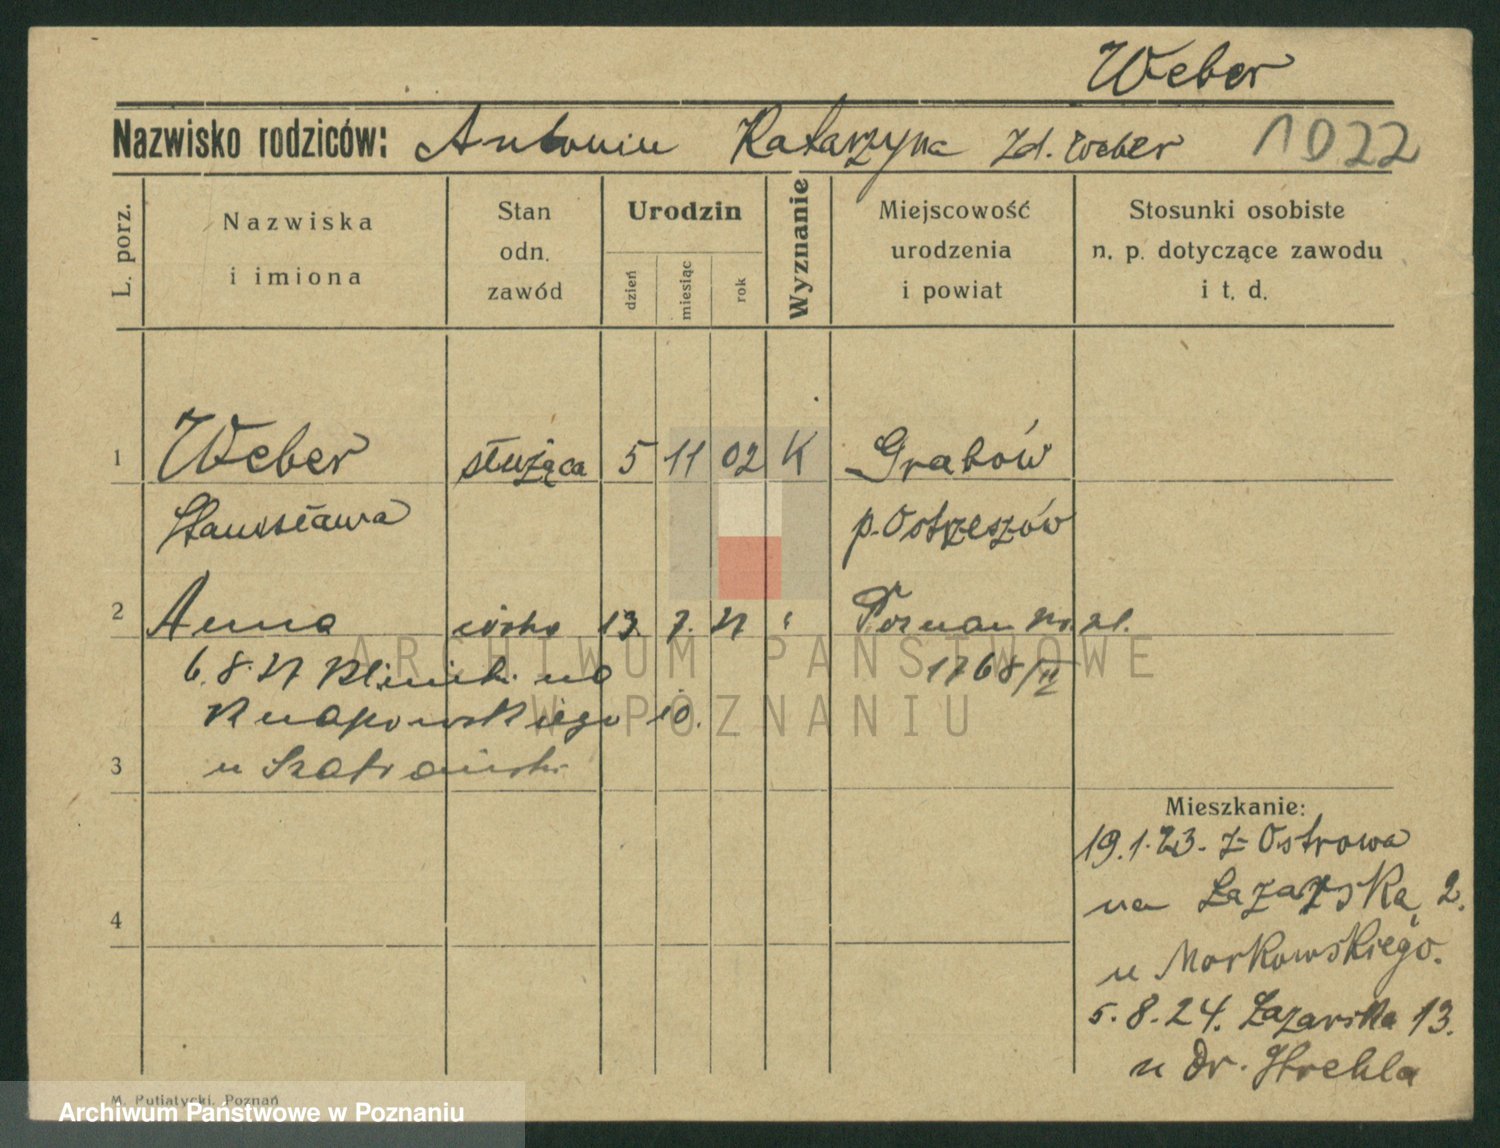 Weber
Nazwisko rodziców: Antoniu Katarzyna zd. Weber 1022
L. porz.
Nazwiska
i imiona
Stan
odn.
zawód
Urodzin
dzień
miesiąc
rok
Wyznanie
Miejscowość
urodzenia
i powiat
Stosunki osobiste
n. p. dotyczące zawodu
i t. d.
1 Weber służąca 5 11 02 K Grabów
Stanisława p. Ostrzeszów
2 Anna córka 13. 7. 27 " Poznań
6.8.27 na 1768/II
Knapowskiego 10.
3 u
4
Mieszkanie:
19.1.23. z Ostrowa
na Łazarską 2.
u Markowskiego.
5.8.24. Łazarska 13.
u Dr. Strehla
ARCHIWUM PAŃSTWOWE
W POZNANIU
M. Putiatycki, Poznań
Archiwum Państwowe w Poznaniu